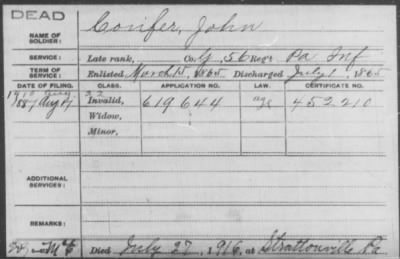 DEAD
NAME OF SOLDIER: Conifer, John
SERVICE: Late rank, Co. G, 56 Reg't Pa Inf
TERM OF SERVICE: Enlisted March 15, 1865 Discharged July 1, 1865
DATE OF FILING. CLASS. APPLICATION NO. LAW. CERTIFICATE NO.
1887 Aug Invalid, 619644 452210
Widow,
Minor,
ADDITIONAL SERVICES:
REMARKS:
Died July 27, 1916, at Strattonville Pa